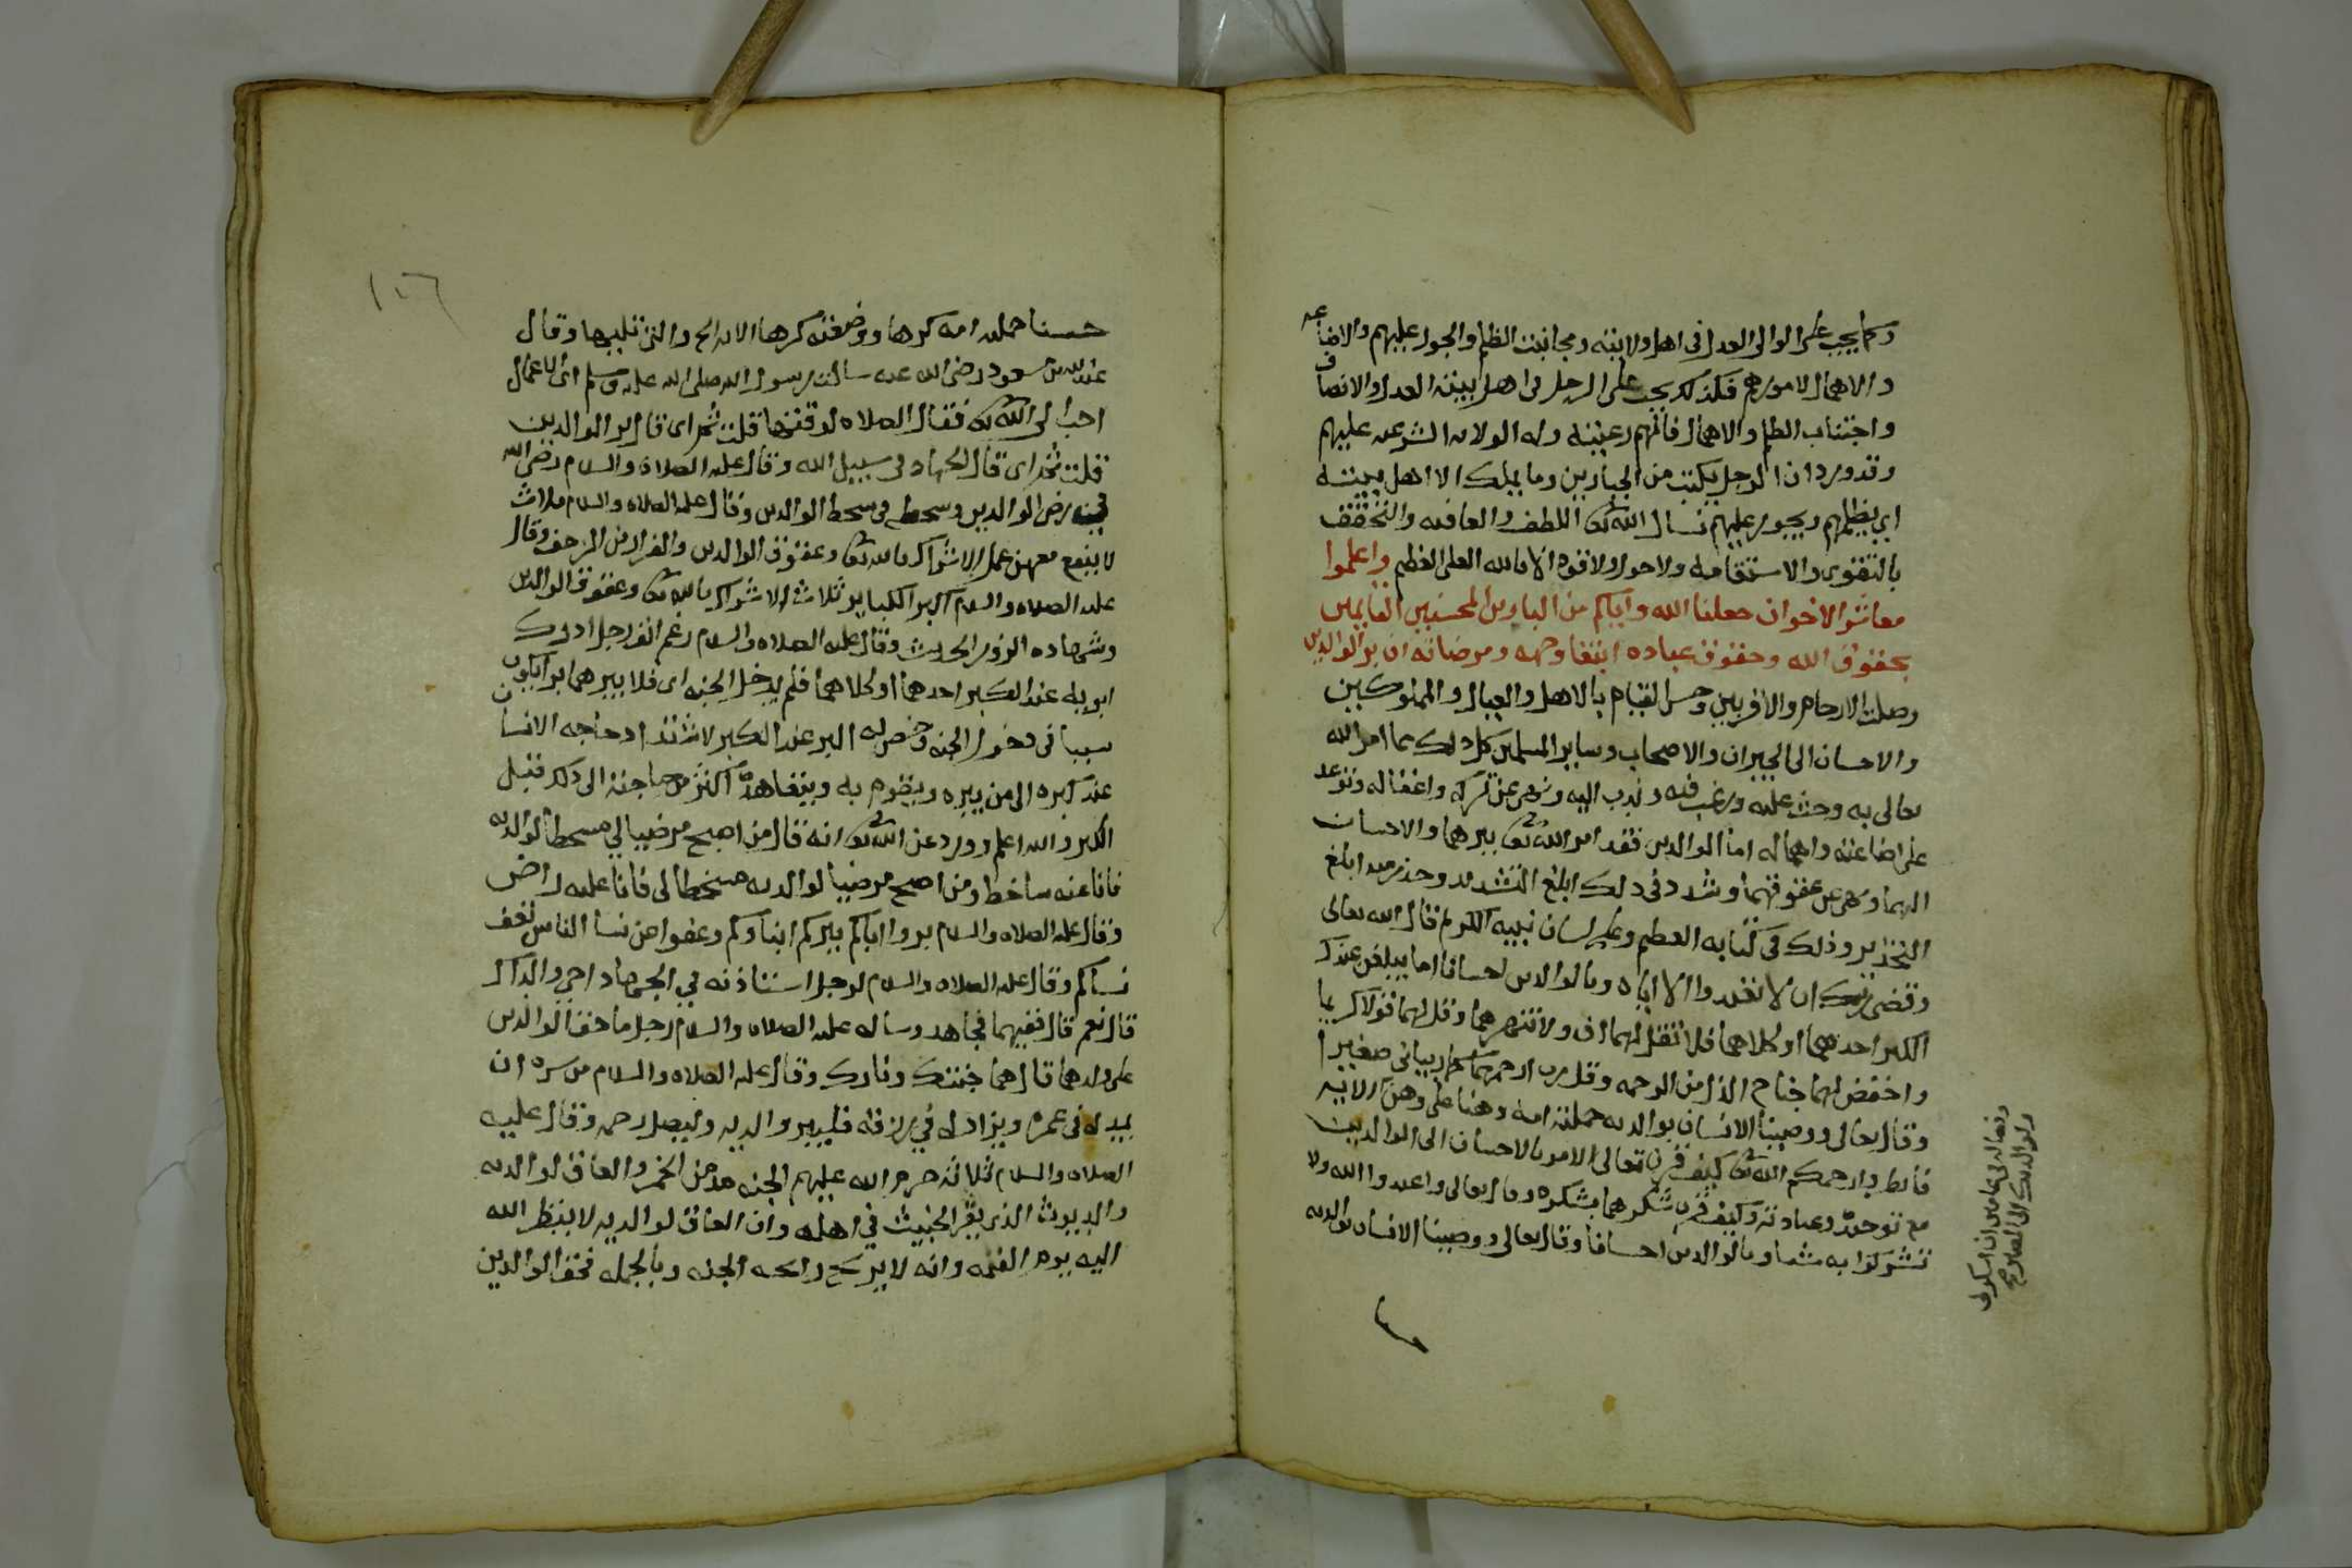 وكما يجب على الوالى العدل فى اهل ولايته ومجانبت الظلم والجور عليهم والاضاعه
والاهمال لامورهم فكذلك يجب على الرجل فى اهل بيته العدل والانصاف
واجتناب الظلم والاهمال فانهم رعيته وله الولايه الشرعيه عليهم
وقد ورد ان الرجل يكتب من الجبارين وما يملك الا اهل بيته
اى يظلمهم ويجور عليهم نسال الله تعا اللطف والعافيه والتحقق
بالتقوى والاستقامه ولا حول ولا قوه الا بالله العلى العظيم واعلموا
معاشر الاخوان جعلنا الله واياكم من البارين المحسنين القايمين
بحقوق الله وحقوق عباده ابتغا وجهه ومرضاته ان بر الوالدين
وصلت الارحام والاقربين وحسن القيام بالاهل والعيال والمملوكين
والاحسان الى الجيران والاصحاب وساير المسلمين كل ذلك مما امر الله
تعالى به وحث عليه ورغب فيه وندب اليه ونهى عن تركه واغفاله وتوعد
على اضاعته واهماله اما الوالدين فقد امر الله تعا ببرهما والاحسان
اليهما ونهى عن عقوقهما وشدد فى ذلك ابلغ التشديد وحذر منه ابلغ
التحذير وذلك فى كتابه العظيم وعلى لسان نبيه الكريم قال الله تعالى
وقضى ربك ان لا تعبدوا الا اياه وبالوالدين احسانا اما يبلغن عندك
الكبر احدهما او كلاهما فلا تقل لهما اف ولا تنهرهما وقل لهما قولا كريما
واخفض لهما جناح الذل من الرحمه وقل رب ارحمهما كما ربيانى صغيرا
وقال تعالى ووصينا الانسان بوالديه حملته امه وهنا على وهن الايه
فانظروا رحمكم الله تعا كيف قرن تعالى الامر بالاحسان الى الوالدين
مع توحيده وعبادته وكيف قرن شكرهما بشكره وقال تعالى واعبدوا الله ولا
تشركوا به شيا وبالوالدين احسانا وقال تعالى ووصينا الانسان بوالديه
وفصاله فى عامين ان اشكر لى
ولوالديك الى المصير صح
١٠٦
حسنا حملته امه كرها ووضعته كرها الايه الخ والتى تليها وقال
عبد الله بن مسعود رضى الله عنه سالت رسول الله صلى الله عليه وسلم اى الاعمال
احب الى الله تعا فقال الصلاه لوقتها قلت ثم اى قال بر الوالدين
قلت ثم اى قال الجهاد فى سبيل الله وقال عليه الصلاة والسلام رضى الله
فى رضى الوالدين وسخطه فى سخط الوالدين وقال عليه الصلاه والسلام ثلاث
لا ينفع معهن عمل الاشراك بالله تعا وعقوق الوالدين والفرار من الزحف وقال
عليه الصلاه والسلام اكبر الكباير ثلاث الاشراك بالله تعا وعقوق الوالدين
وشهاده الزور الحديث وقال عليه الصلاه والسلام رغم انف رجل ادرك
ابويه عند الكبر احدهما او كلاهما فلم يدخل الجنه اى فلا يبرهما برا يكون
سببا فى دخول الجنه وخص له البر عند الكبر لاشتداد حاجه الانسان
عند كبره الى من يبره ويقوم به ويتعاهده اكثر من حاجته الى ذلك قبل
الكبر والله اعلم وورد عن الله تعا انه قال من اصبح مرضيا لي مسخطا لوالديه
فانا عنه ساخط ومن اصبح مرضيا لوالديه مسخطا لى فانا عليه راض
وقال عليه الصلاه والسلام بروا اباكم يبركم ابناوكم وعفوا عن نسا الناس تعف
نساكم وقال عليه الصلاه والسلام لرجل استاذنه في الجهاد احي والداك
قال نعم قال ففيهما فجاهد وساله عليه الصلاه والسلام رجل ما حق الوالدين
على ولدهما قال هما جنتك ونارك وقال عليه الصلاه والسلام من سره ان
يمد له فى عمره ويزاد له في رزقه فليبر والديه وليصل رحمه وقال عليه
الصلاه والسلام ثلاثه حرم الله عليهم الجنه مدمن الخمر والعاق لوالديه
والديوث الذى يقر الخبيث في اهله وان العاق لوالديه لا ينظر الله
اليه يوم القيمه وانه لا يرح رايحه الجنه وبالجمله فحق الوالدين